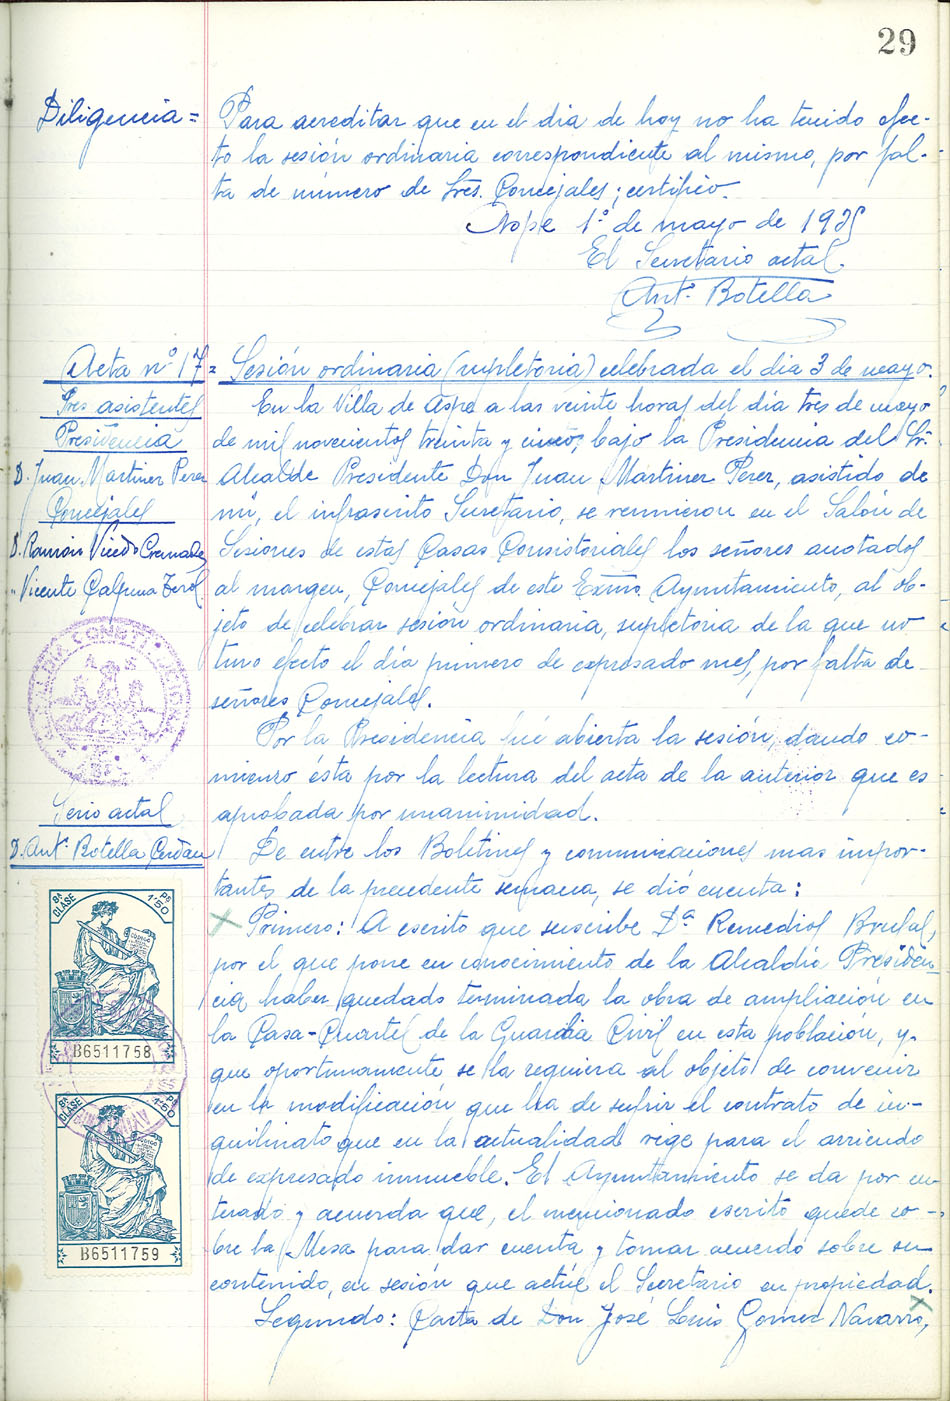 29
Diligencia = Para acreditar que en el dia de hoy no ha tenido efec-
to la sesión ordinaria correspondiente al mismo, por fal-
ta de número de Sres. Concejales; certifico.
Aspe 1º de mayo de 1935
El Secretario actal.
Antº Botella
Acta nº 17 = Sesión ordinaria (supletoria) celebrada el dia 3 de mayo.
Sres asistentes
Presidencia
D. Juan Martinez Perez
Concejales
D. Ramón Vicedo Cremades
" Vicente Calpena Terol
En la Villa de Aspe a las veinte horas del día tres de mayo
de mil novecientos treinta y cinco, bajo la Presidencia del Sr.
Alcalde Presidente Don Juan Martinez Perez, asistido de
mi, el infrascrito Secretario, se reunieron en el Salón de
Sesiones de estas Casas Consistoriales los señores anotados
al margen, Concejales de este Exmo. Ayuntamiento, al ob-
jeto de celebrar sesión ordinaria, supletoria de la que no
tuvo efecto el día primero de expresado mes, por falta de
señores Concejales.
Por la Presidencia fué abierta la sesión, dando co-
mienzo ésta por la lectura del acta de la anterior que es
aprobada por unanimidad.
Serio actal
D. Antº Botella Cerdán
De entre los Boletines y comunicaciones mas impor-
tantes de la precedente semana, se dió cuenta:
Primero: A escrito que suscribe Dª Remedios Brufal,
por el que pone en conocimiento de la Alcaldía Presiden-
cia haber quedado terminada la obra de ampliación en
la Casa-Cuartel de la Guardia Civil en esta población, y
que oportunamente se la requiera al objeto de convenir
en la modificación que ha de sufrir el contrato de in-
quilinato que en la actualidad rige para el arriendo
de expresado inmueble. El Ayuntamiento se da por en-
terado y acuerda que, el mencionado escrito quede so-
bre la Mesa para dar cuenta y tomar acuerdo sobre su
contenido, en sesión que actúe el Secretario en propiedad.
Segundo: Carta de Don José Luis Gomez Navarro,
8ª CLASE
PS 1'50
CODIGO
B6511758
8ª CLASE
PS 1'50
CODIGO
B6511759